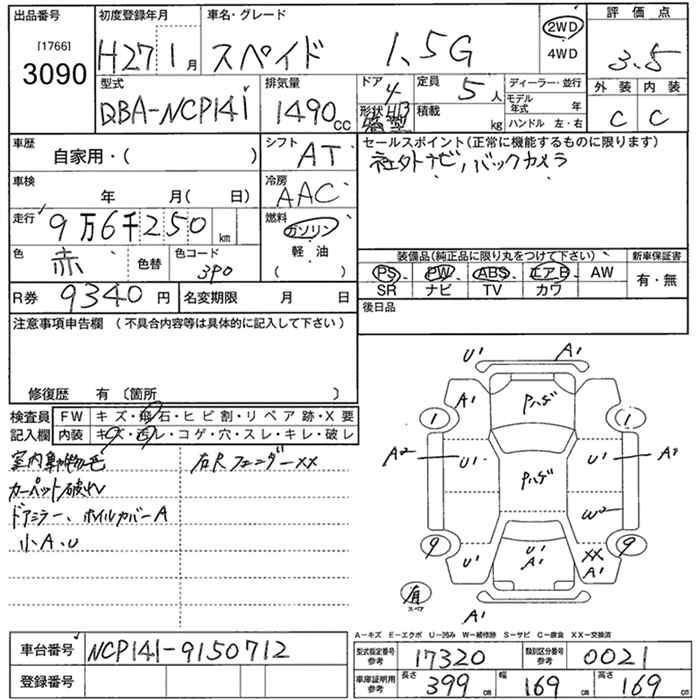 出品番号 初度登録年月 車名・グレード 評価点
[1766]
3090 H27 1月 スペイド 1.5G 2WD 4WD 3.5
型式 排気量 ドア 定員 ディーラー・並行 外装 内装
QBA-NCP141 1490cc 4 5人 モデル年式 年 C C
形状 H13 積載 kg ハンドル 左・右
車歴 シフト セールスポイント(正常に機能するものに限ります)
自家用・( ) AT 社外ナビ, バックカメラ
車検 年 月( 日) 冷房 AAC
走行 9万6千250km 燃料 ガソリン
軽油
( )
色 赤 色替 色コード 3P0
装備品(純正品に限り丸をつけて下さい) 新車保証書
PS PW ABS エアB AW 有・無
SR ナビ TV カワ
R券 9340円 名変期限 月 日 後日品
注意事項申告欄(不具合内容等は具体的に記入して下さい)
修復歴 有〔箇所 〕
検査員 FW キズ・飛石・ヒビ割・リペア跡・X要
記入欄 内装 キズ・汚レ・コゲ・穴・スレ・キレ・破レ
室内動物毛 右Rフェンダーxx
カーペット破れ
ドアミラー、ホイルカバーA
小A、U
U1 A1
A1 Pハゲ
1 1
A2 U1 Pハゲ U1 A2
W2
9 9
U1 U1 A1 XX A1
有
スペア
A1
A−キズ E−エクボ U−凹み W−補修跡 S−サビ C−腐食 XX−交換済
車台番号 NCP141-9150712 型式指定番号 参考 17320 類別区分番号 参考 0021
登録番号 車庫証明用 参考 長さ 399cm 幅 169cm 高さ 169cm